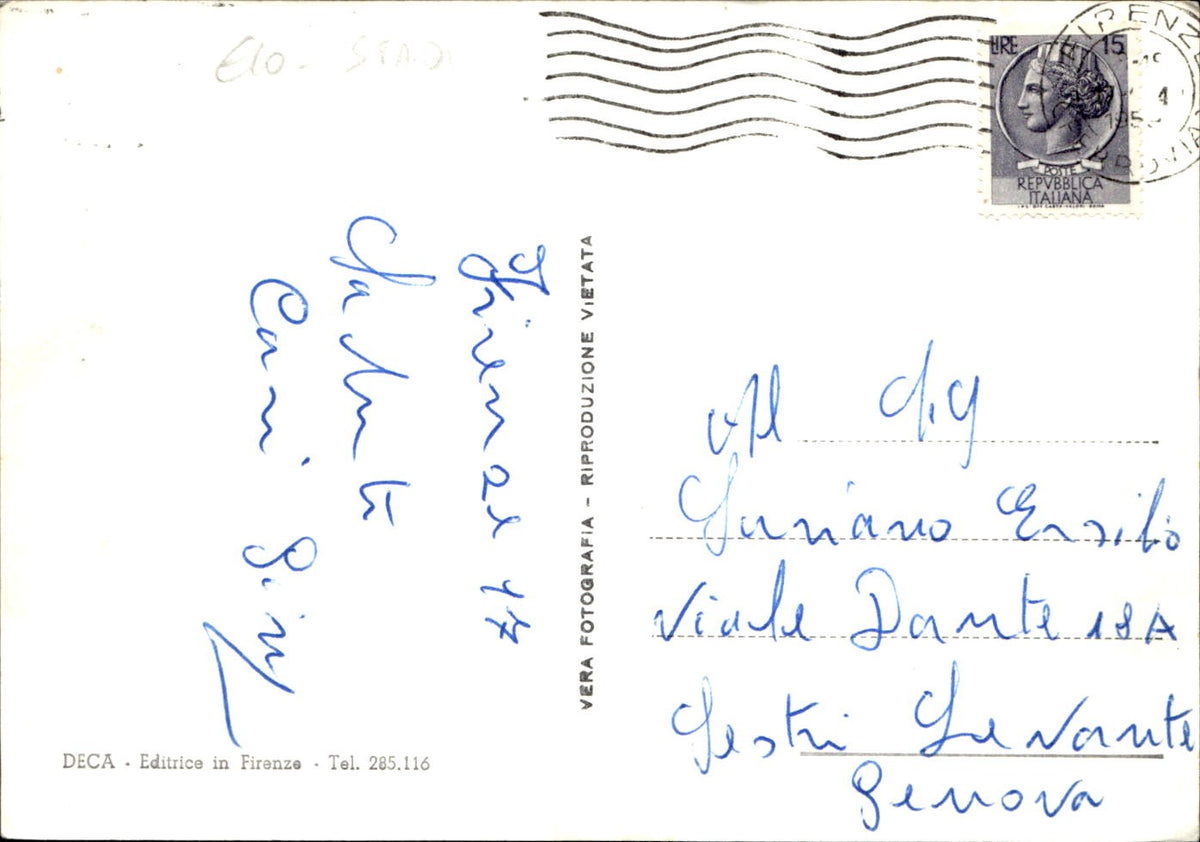 €10 -
LIRE 15
POSTE
REPVBBLICA
ITALIANA
FIRENZE
FERROVIA
Firenze 17
Saluti
Cari
VERA FOTOGRAFIA - RIPRODUZIONE VIETATA
Al Sig
Lariano Ersilio
Viale Dante 18A
Sestri Levante
Genova
DECA - Editrice in Firenze - Tel. 285.116